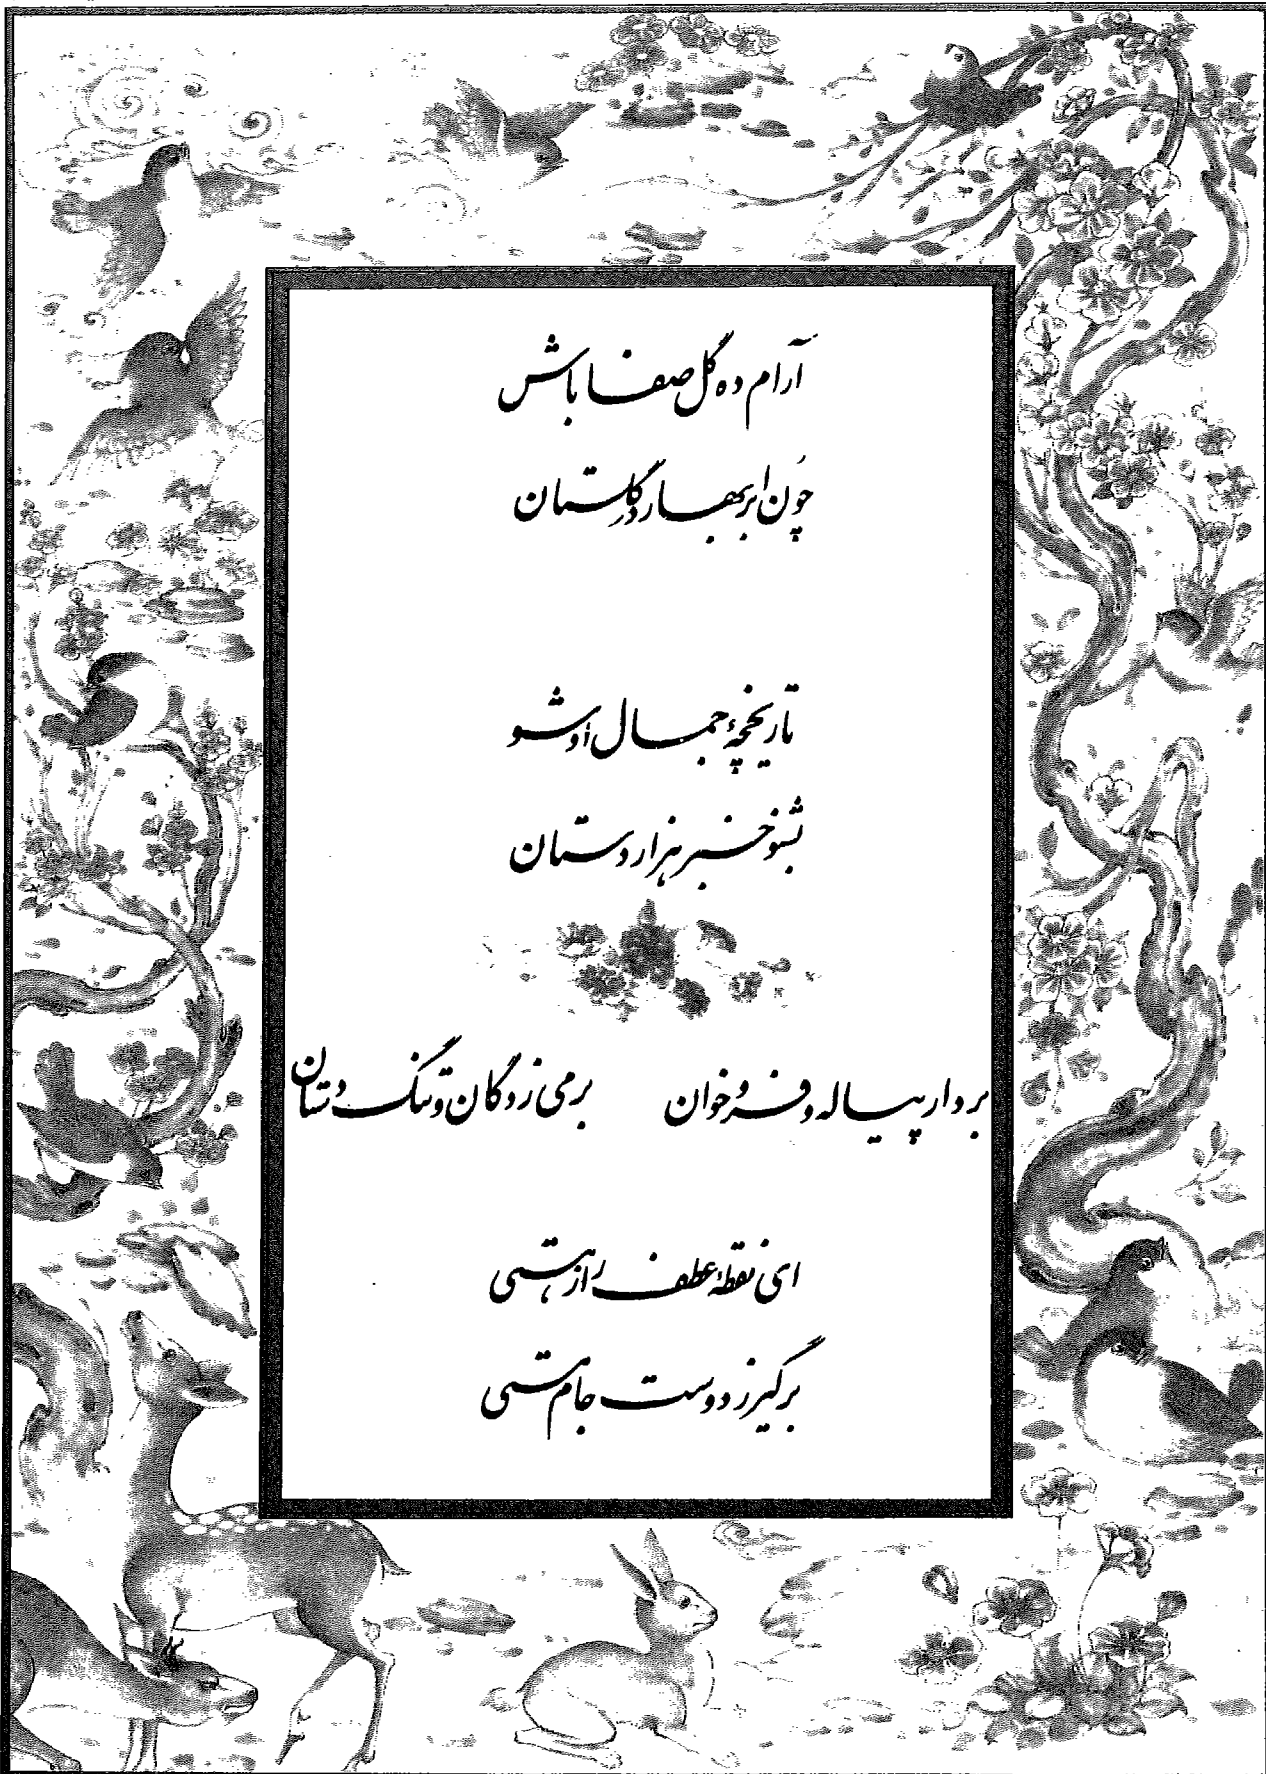 آرام ده گل صفا باش
چون ابر بهار در گلستان
تاریخچهٔ جمال او شو
بشنو خبر هزاردستان
بردار پیاله و فرو خوان بر می زدگان و تنگ دستان
ای نقطهٔ عطف راز هستی
برگیر ز دوست جام مستی